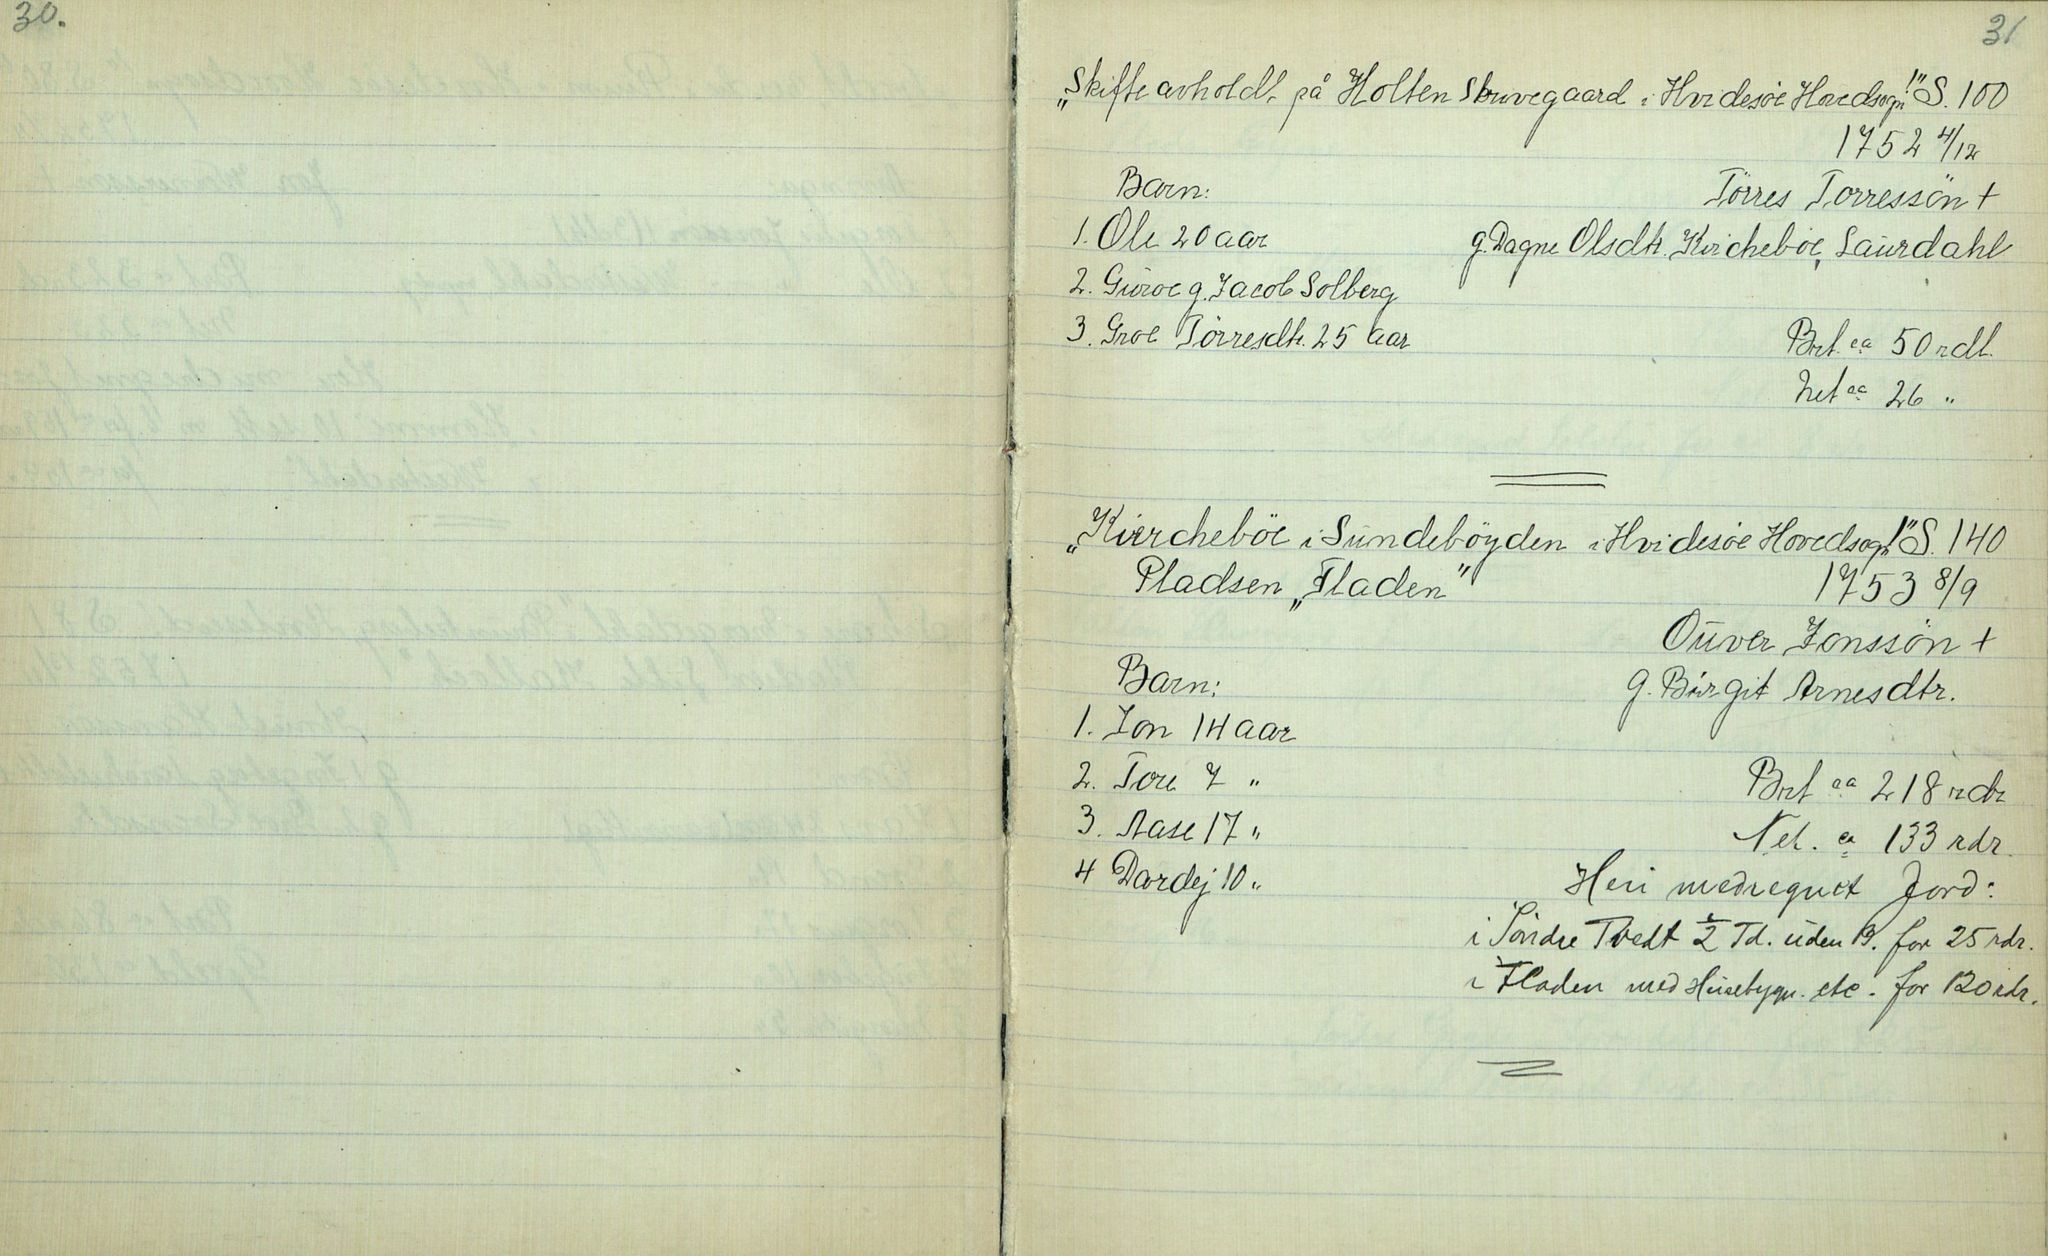 30.
31
„Skifte avholdt på Holten Skuvegaard i Hvidesöe Hovedsogn!" S. 100
1752 4/12
Barn: Törres Torressön +
1. Ole 20 aar g. Dagne Olsdtr. Kircheböe, Laurdahl
2. Guroe g. Jacob Solberg
3. Groe Törresdtr. 25 aar Brt. ca 50 rdl.
Net ca 26 "
„Kircheböe i Sundebögden i Hvidesöe Hovedsogn!" S. 140
Pladsen „Fladen" 1753 8/9
Ouver Jonssön +
Barn: g. Birgit Arnesdtr.
1. Jon 14 aar
2. Tore 7 " Brt ca 218 rdr
3. Aase 17 " Net. ca 133 rdr.
4 Dordej 10 " Heri medregnet Jord:
i Söndre Tvedt ½ Td. uden B. for 25 rdr.
i Fladen med Husebygn. etc. for 120 rdr.